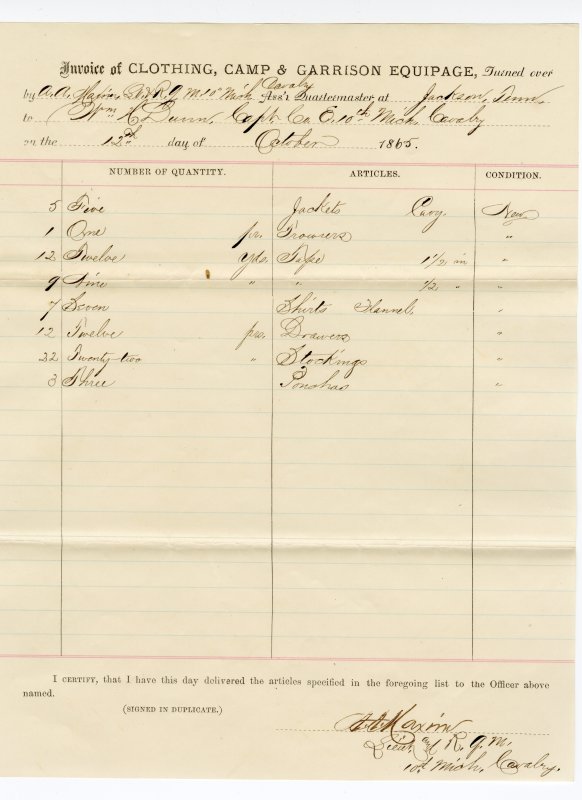 Invoice of CLOTHING, CAMP & GARRISON EQUIPAGE, Turned over
by A. A. Maxim, Lt & R Q M 10th Mich Cavalry Ass't Quartermaster at Jackson, Tenn,
to Wm H Dunn, Capt. Co E, 10th Mich Cavalry
on the 12th day of October 1865.
NUMBER OF QUANTITY. ARTICLES. CONDITION.
5 Five Jackets Cavy. New
1 One pr. Trowsers "
12 Twelve yds. Tape 1 1/2 in "
9 Nine " " 1/2 " "
7 Seven Shirts Flannel, "
12 Twelve prs. Drawers "
22 Twenty-two " Stockings "
3 Three Ponchas "
I CERTIFY, that I have this day delivered the articles specified in the foregoing list to the Officer above
named.
(SIGNED IN DUPLICATE.)
A A Maxim
Lieut and R. Q. M.
10th Mich. Cavalry.